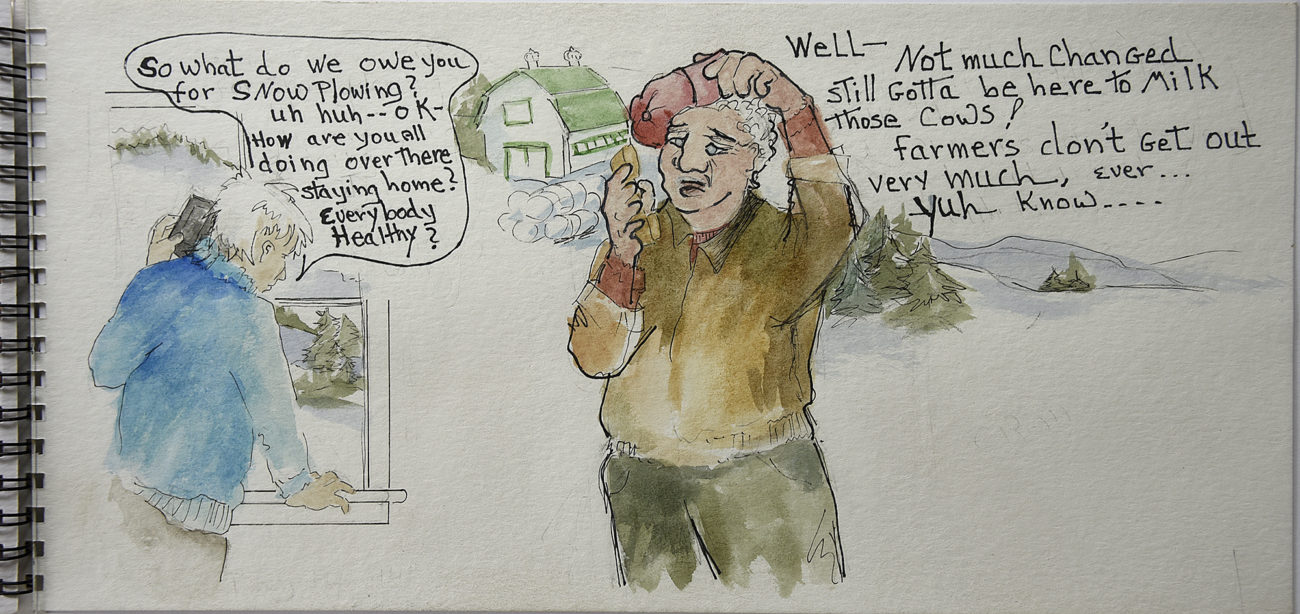 So what do we owe you
for SNow Plowing?
uh huh -- OK-
How are you all
doing over there
staying home?
Everybody
Healthy?
Well— Not much changed
still Gotta be here to Milk
those cows!
farmers don't Get out
very much, ever...
yuh know....